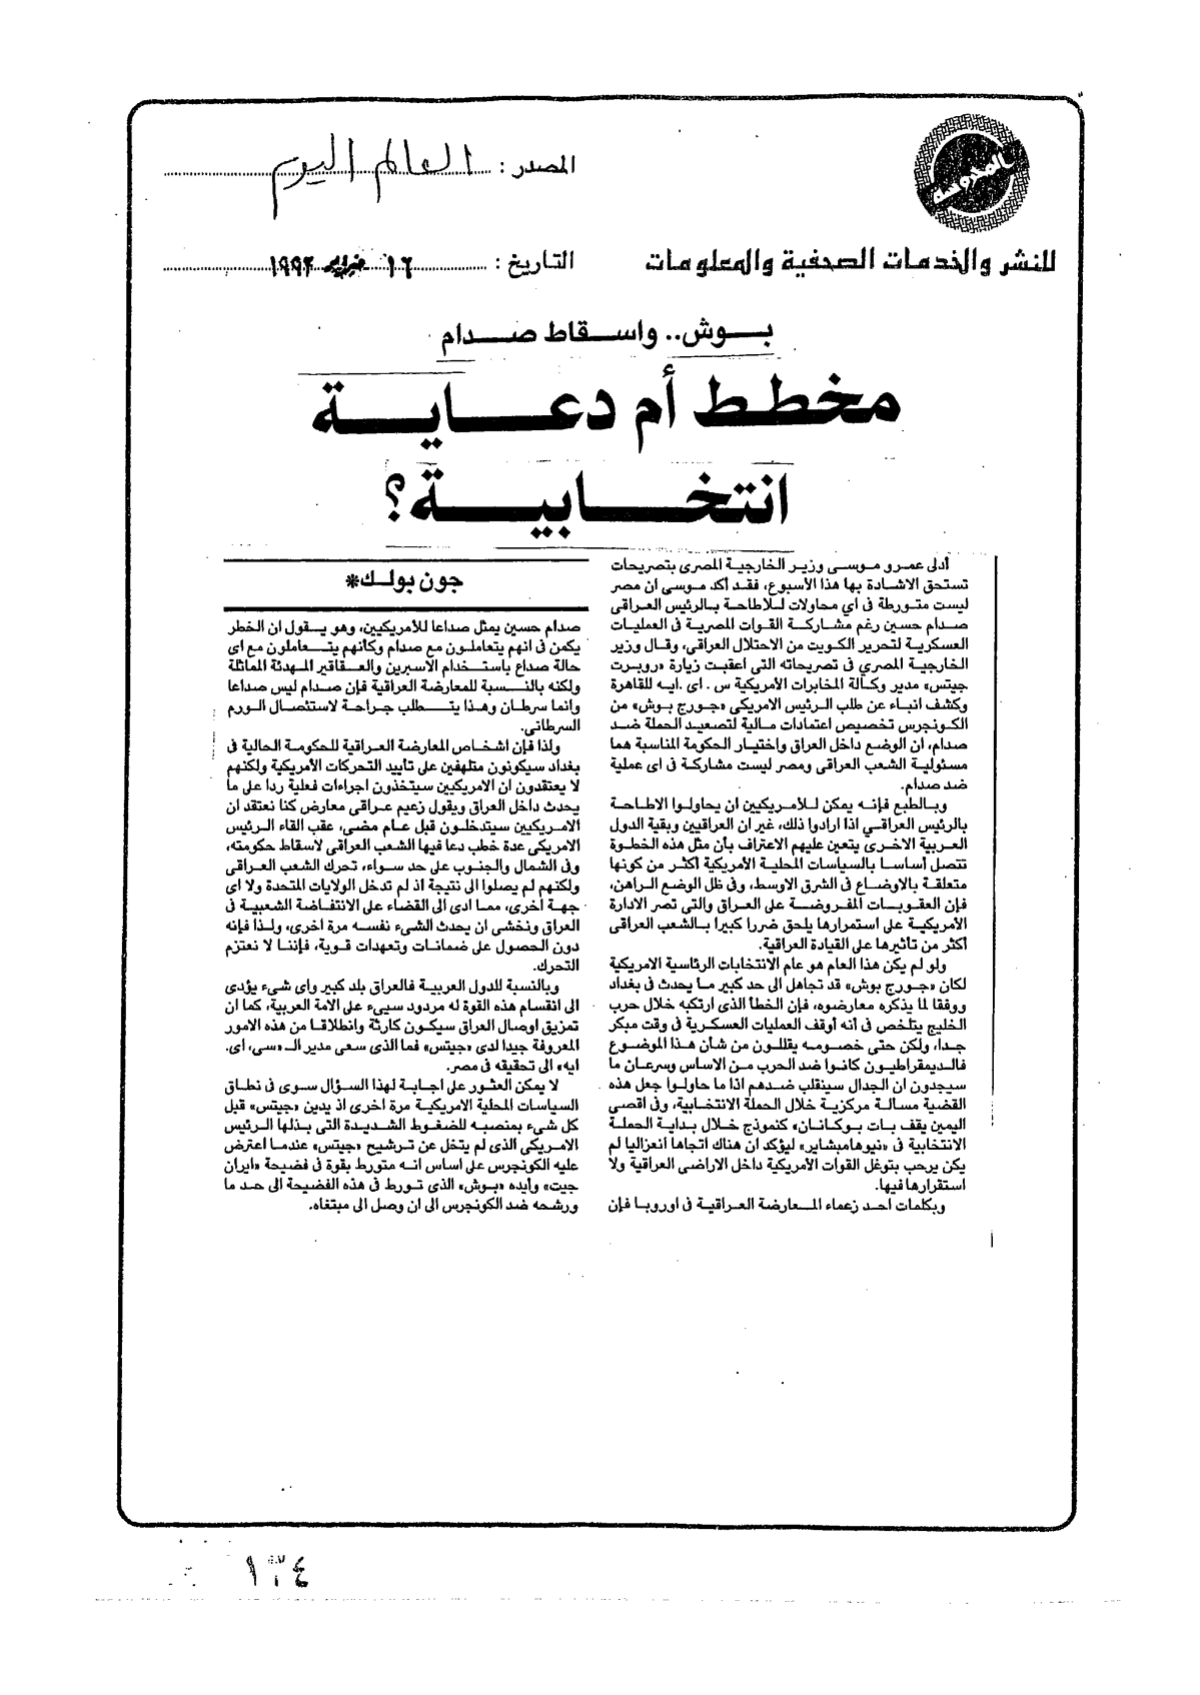 المصدر : العالم اليوم
المحروسة
للنشر والخدمات الصحفية والمعلومات
التاريخ : ١٦ فبراير ١٩٩٢
بوش.. واسقاط صدام
مخطط أم دعاية
انتخابية؟
أدلى عمرو موسى وزير الخارجية المصرى بتصريحات
تستحق الاشادة بها هذا الأسبوع، فقد أكد موسى ان مصر
ليست متورطة فى أي محاولات للاطاحة بالرئيس العراقى
صدام حسين رغم مشاركة القوات المصرية فى العمليات
العسكرية لتحرير الكويت من الاحتلال العراقى، وقال وزير
الخارجية المصري فى تصريحاته التى اعقبت زيارة «روبرت
جيتس» مدير وكالة المخابرات الأمريكية س . اى .ايه للقاهرة
وكشف انباء عن طلب الرئيس الامريكى «جورج بوش» من
الكونجرس تخصيص اعتمادات مالية لتصعيد الحملة ضد
صدام، ان الوضع داخل العراق واختيار الحكومة المناسبة هما
مسئولية الشعب العراقى ومصر ليست مشاركة فى اى عملية
ضد صدام.
وبالطبع فإنه يمكن للأمريكيين ان يحاولوا الاطاحة
بالرئيس العراقي اذا ارادوا ذلك، غير ان العراقيين وبقية الدول
العربية الاخرى يتعين عليهم الاعتراف بأن مثل هذه الخطوة
تتصل أساسا بالسياسات المحلية الأمريكية اكثر من كونها
متعلقة بالاوضاع فى الشرق الاوسط، وفى ظل الوضع الراهن،
فإن العقوبات المفروضة على العراق والتى تصر الادارة
الأمريكية على استمرارها يلحق ضررا كبيرا بالشعب العراقى
أكثر من تاثيرها على القيادة العراقية.
ولو لم يكن هذا العام هو عام الانتخابات الرئاسية الامريكية
لكان «جورج بوش» قد تجاهل الى حد كبير ما يحدث فى بغداد
ووفقا لما يذكره معارضوه، فإن الخطأ الذى ارتكبه خلال حرب
الخليج يتلخص فى أنه أوقف العمليات العسكرية فى وقت مبكر
جدا، ولكن حتى خصومه يقللون من شأن هذا الموضوع
فالديمقراطيون كانوا ضد الحرب من الاساس وسرعان ما
سيجدون ان الجدال سينقلب ضدهم اذا ما حاولوا جعل هذه
القضية مسالة مركزية خلال الحملة الانتخابية، وفى اقصى
اليمين يقف «بات بوكانان» كنموذج خلال بداية الحملة
الانتخابية فى «نيوهامبشاير» ليؤكد ان هناك اتجاها انعزاليا لم
يكن يرحب بتوغل القوات الأمريكية داخل الاراضى العراقية ولا
استقرارها فيها.
وبكلمات احد زعماء المعارضة العراقية فى اوروبا فإن
جون بولك*
صدام حسين يمثل صداعا للأمريكيين، وهو يقول ان الخطر
يكمن فى انهم يتعاملون مع صدام وكانهم يتعاملون مع اى
حالة صداع باستخدام الاسبرين والعقاقير المهدئة المماثلة
ولكنه بالنسبة للمعارضة العراقية فإن صدام ليس صداعا
وانما سرطان وهذا يتطلب جراحة لاستئصال الورم
السرطانى.
ولذا فإن اشخاص المعارضة العراقية للحكومة الحالية فى
بغداد سيكونون متلهفين على تأييد التحركات الأمريكية ولكنهم
لا يعتقدون ان الامريكيين سيتخذون اجراءات فعلية ردا على ما
يحدث داخل العراق ويقول زعيم عراقى معارض كنا نعتقد ان
الامريكيين سيتدخلون قبل عام مضى، عقب القاء الرئيس
الامريكى عدة خطب دعا فيها الشعب العراقى لاسقاط حكومته،
وفى الشمال والجنوب على حد سواء، تحرك الشعب العراقى
ولكنهم لم يصلوا الى نتيجة اذ لم تدخل الولايات المتحدة ولا اى
جهة اخرى، مما ادى الى القضاء على الانتفاضة الشعبية فى
العراق ونخشى ان يحدث الشىء نفسه مرة اخرى، ولذا فإنه
دون الحصول على ضمانات وتعهدات قوية، فإننا لا نعتزم
التحرك.
وبالنسبة للدول العربية فالعراق بلد كبير واى شىء يؤدى
الى انقسام هذه القوة له مردود سيىء على الامة العربية، كما ان
تمزيق اوصال العراق سيكون كارثة وانطلاقا من هذه الامور
المعروفة جيدا لدى «جيتس» فما الذى سعى مدير الـ «سى، اى.
ايه» الى تحقيقه فى مصر.
لا يمكن العثور على اجابة لهذا السؤال سوى فى نطاق
السياسات المحلية الامريكية مرة اخرى اذ يدين «جيتس» قبل
كل شىء بمنصبه للضغوط الشديدة التى بذلها الرئيس
الامريكى الذى لم يتخل عن ترشيح «جيتس» عندما اعترض
عليه الكونجرس على اساس انه متورط بقوة فى فضيحة «ايران
جيت» وأيده «بوش» الذى تورط فى هذه الفضيحة الى حد ما
ورشحه ضد الكونجرس الى ان وصل الى مبتغاه.